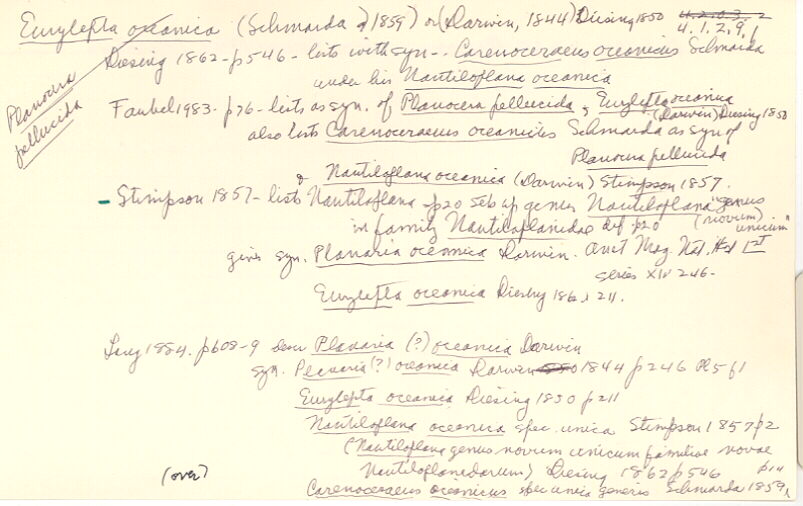 Eurylepta oceanica (Schmarda, 1859) or (Darwin, 1844) Diesing 1850
4.1.2.9.1
Planocera pellucida
Diesing 1862 - p546 - lists with syn -. Carenoceraeus oceanicus Schmarda
under his Nautiloplana oceanica
Faubel 1983 - p76 - lists as syn. of Planocera pellucida, Eurylepta oceanica
(Darwin) Diesing 1850
also lists Carenoceraeus oceanicus Schmarda as syn of
Planocera pellucida
& Nautiloplana oceanica (Darwin) Stimpson 1857.
- Stimpson 1857 - lists Nautiloplana p20 set up genus Nautiloplana "genus
in family Nautiloplanidae def. p20 (novum) unicum"
gives syn. Planaria oceanica Darwin. Mag Nat. Hist 1st
series XIV 246 -
Eurylepta oceanica Diesing 211.
Lang 1884. p608-9 Planaria (?) oceanica Darwin
syn. (?) oceanica Darwin 1844 p246 Pl 5 f1
Eurylepta oceanica Diesing 1850 p211
Nautiloplana oceanica spec. unica Stimpson 1857 p2
(Nautiloplana genus novum unicum familiae novae
Nautiloplanidarum) Diesing 1862 p546
(over)
Carenoceraeus oceanicus spec unica generis Schmarda 1859,